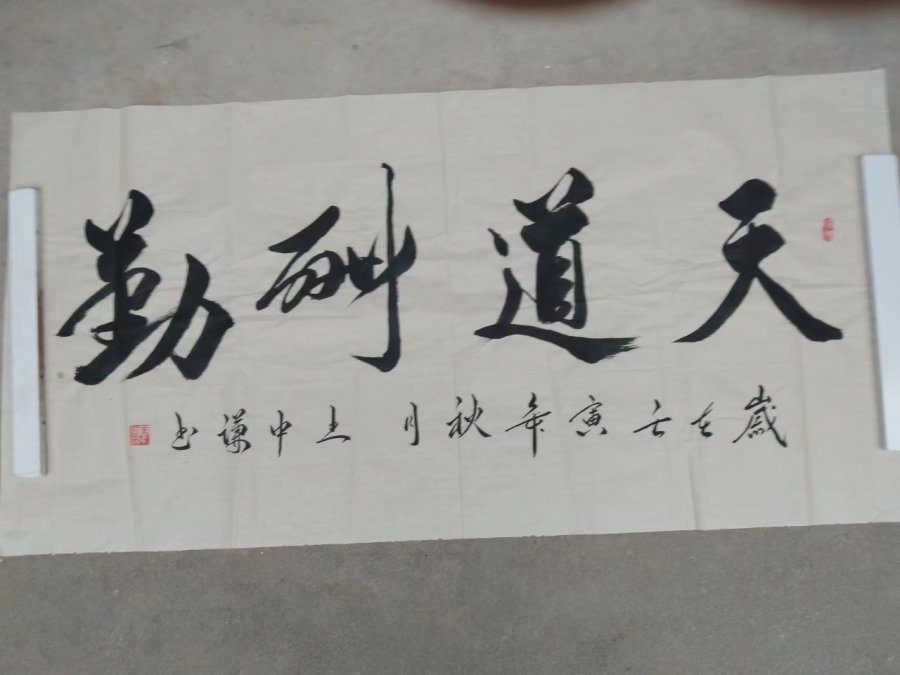 天道酬勤
岁在壬寅年秋月王中谦书